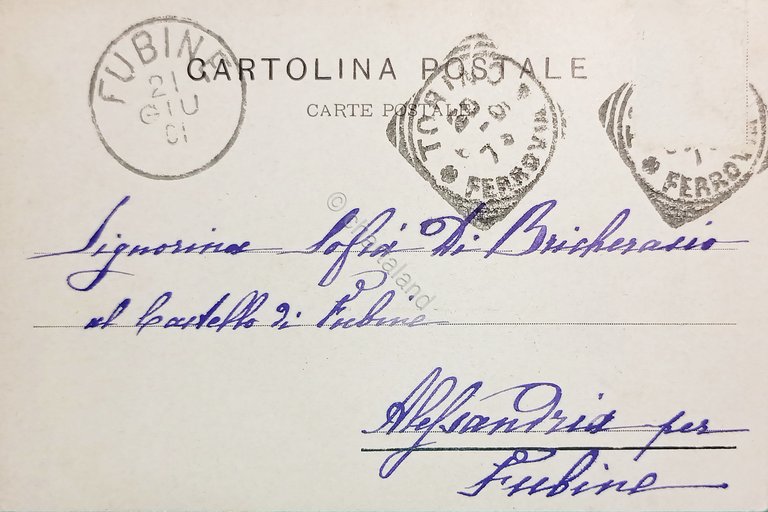 FUBINE
21
GIU
01
CARTOLINA POSTALE
CARTE POSTALE
TORINO
FERROVIA
FERROVIA
© chartaland
Signorina Sofia Di Bricherasio
al Castello di Fubine
Alessandria per
Fubine